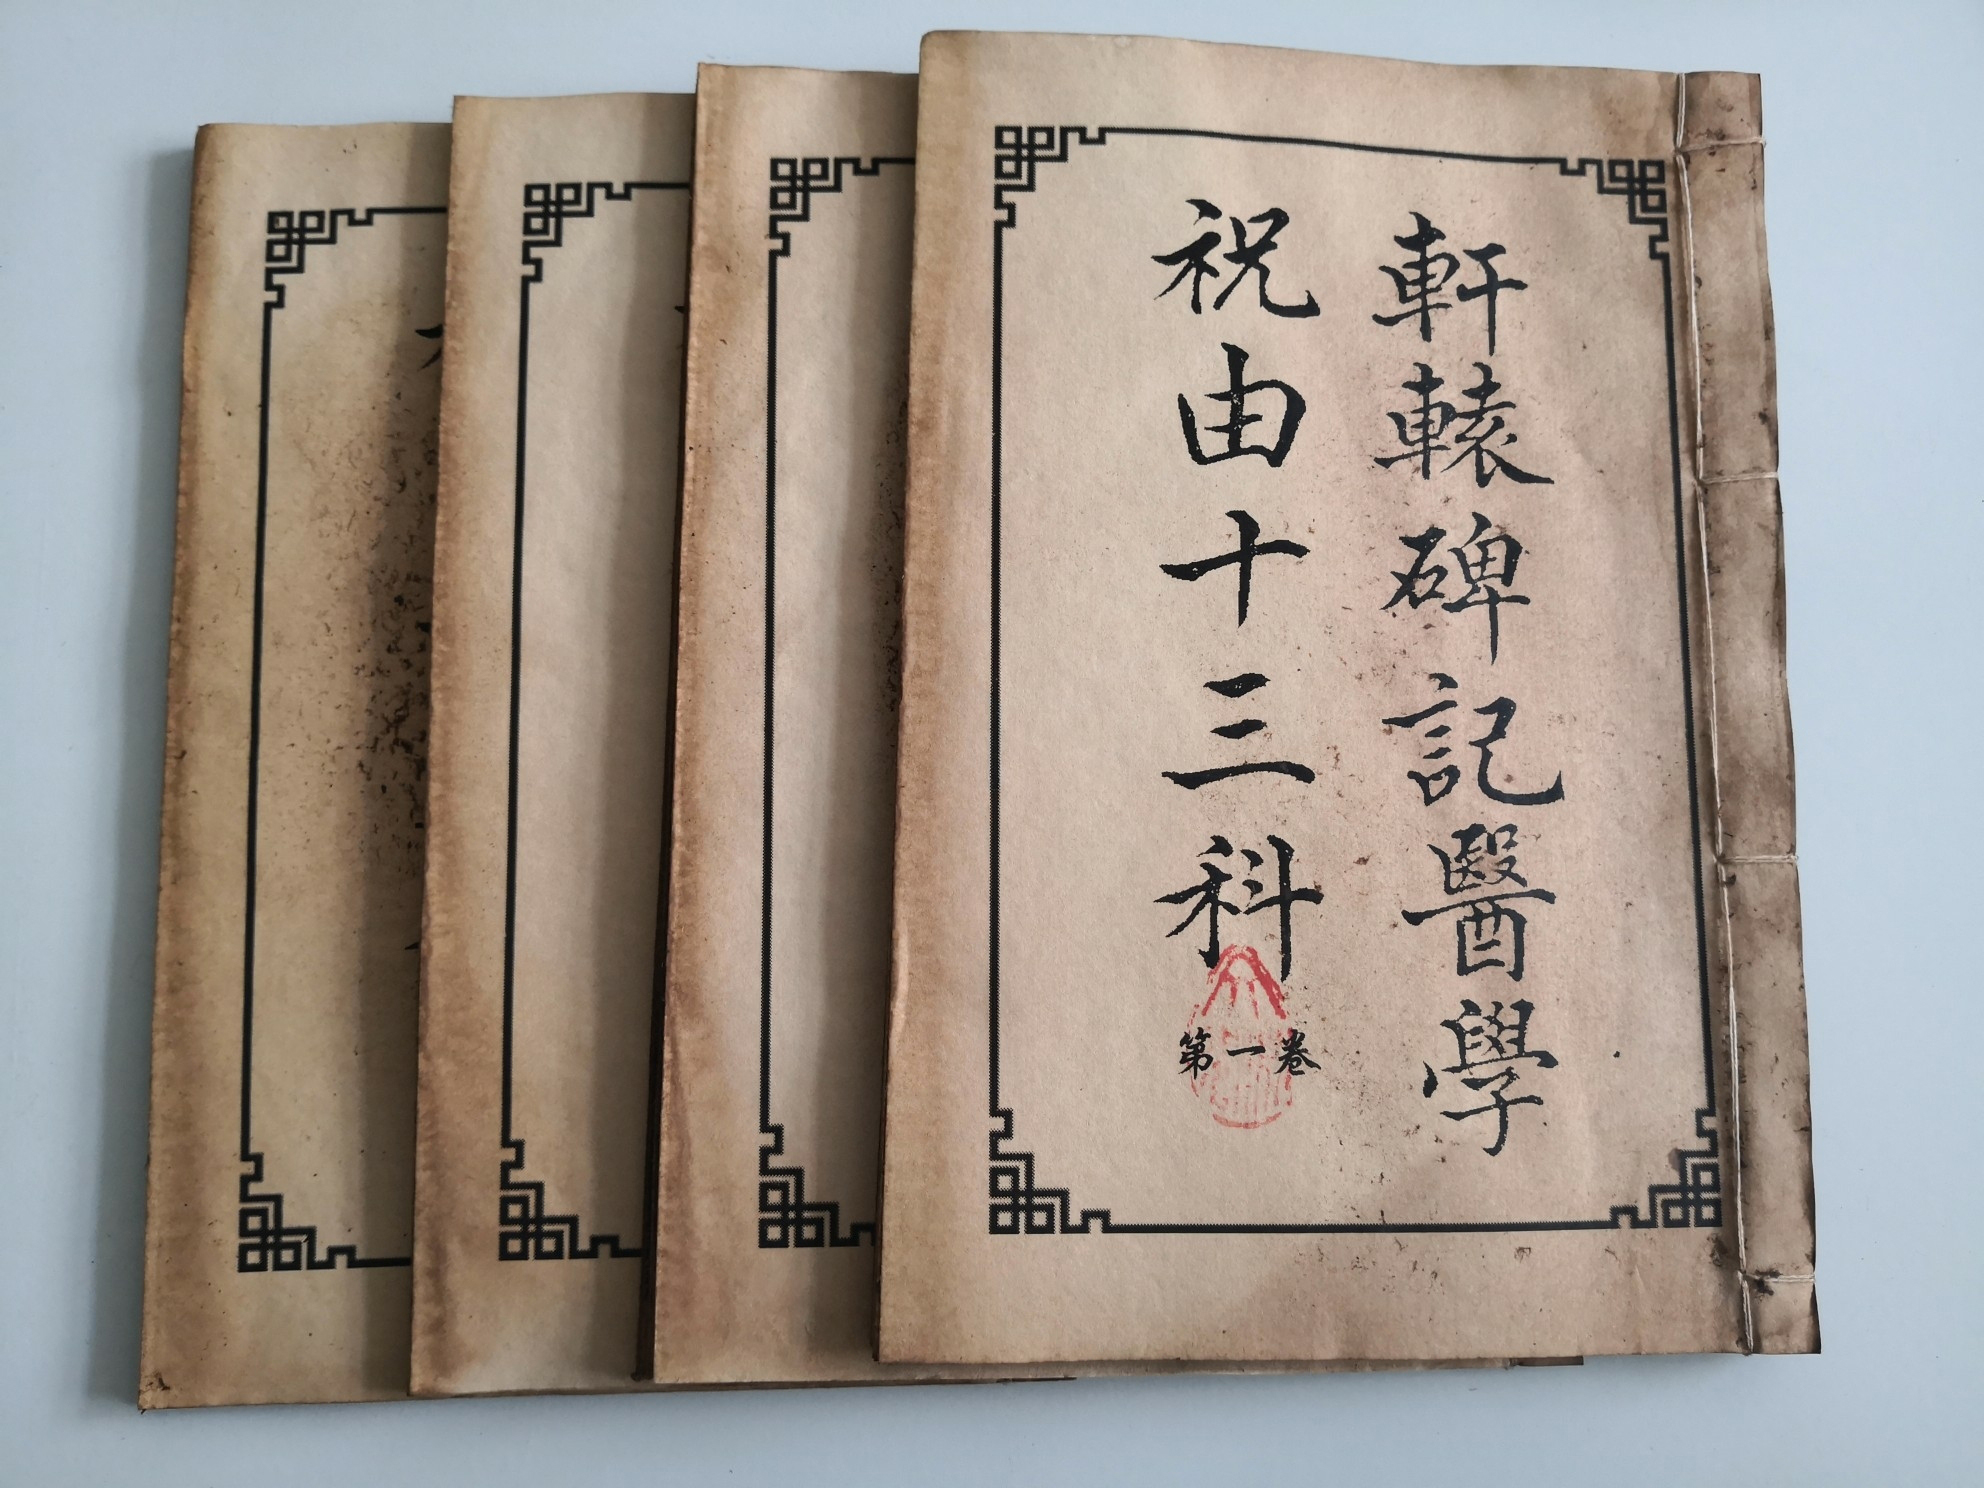 軒轅碑記醫學
祝由十三科
第一卷